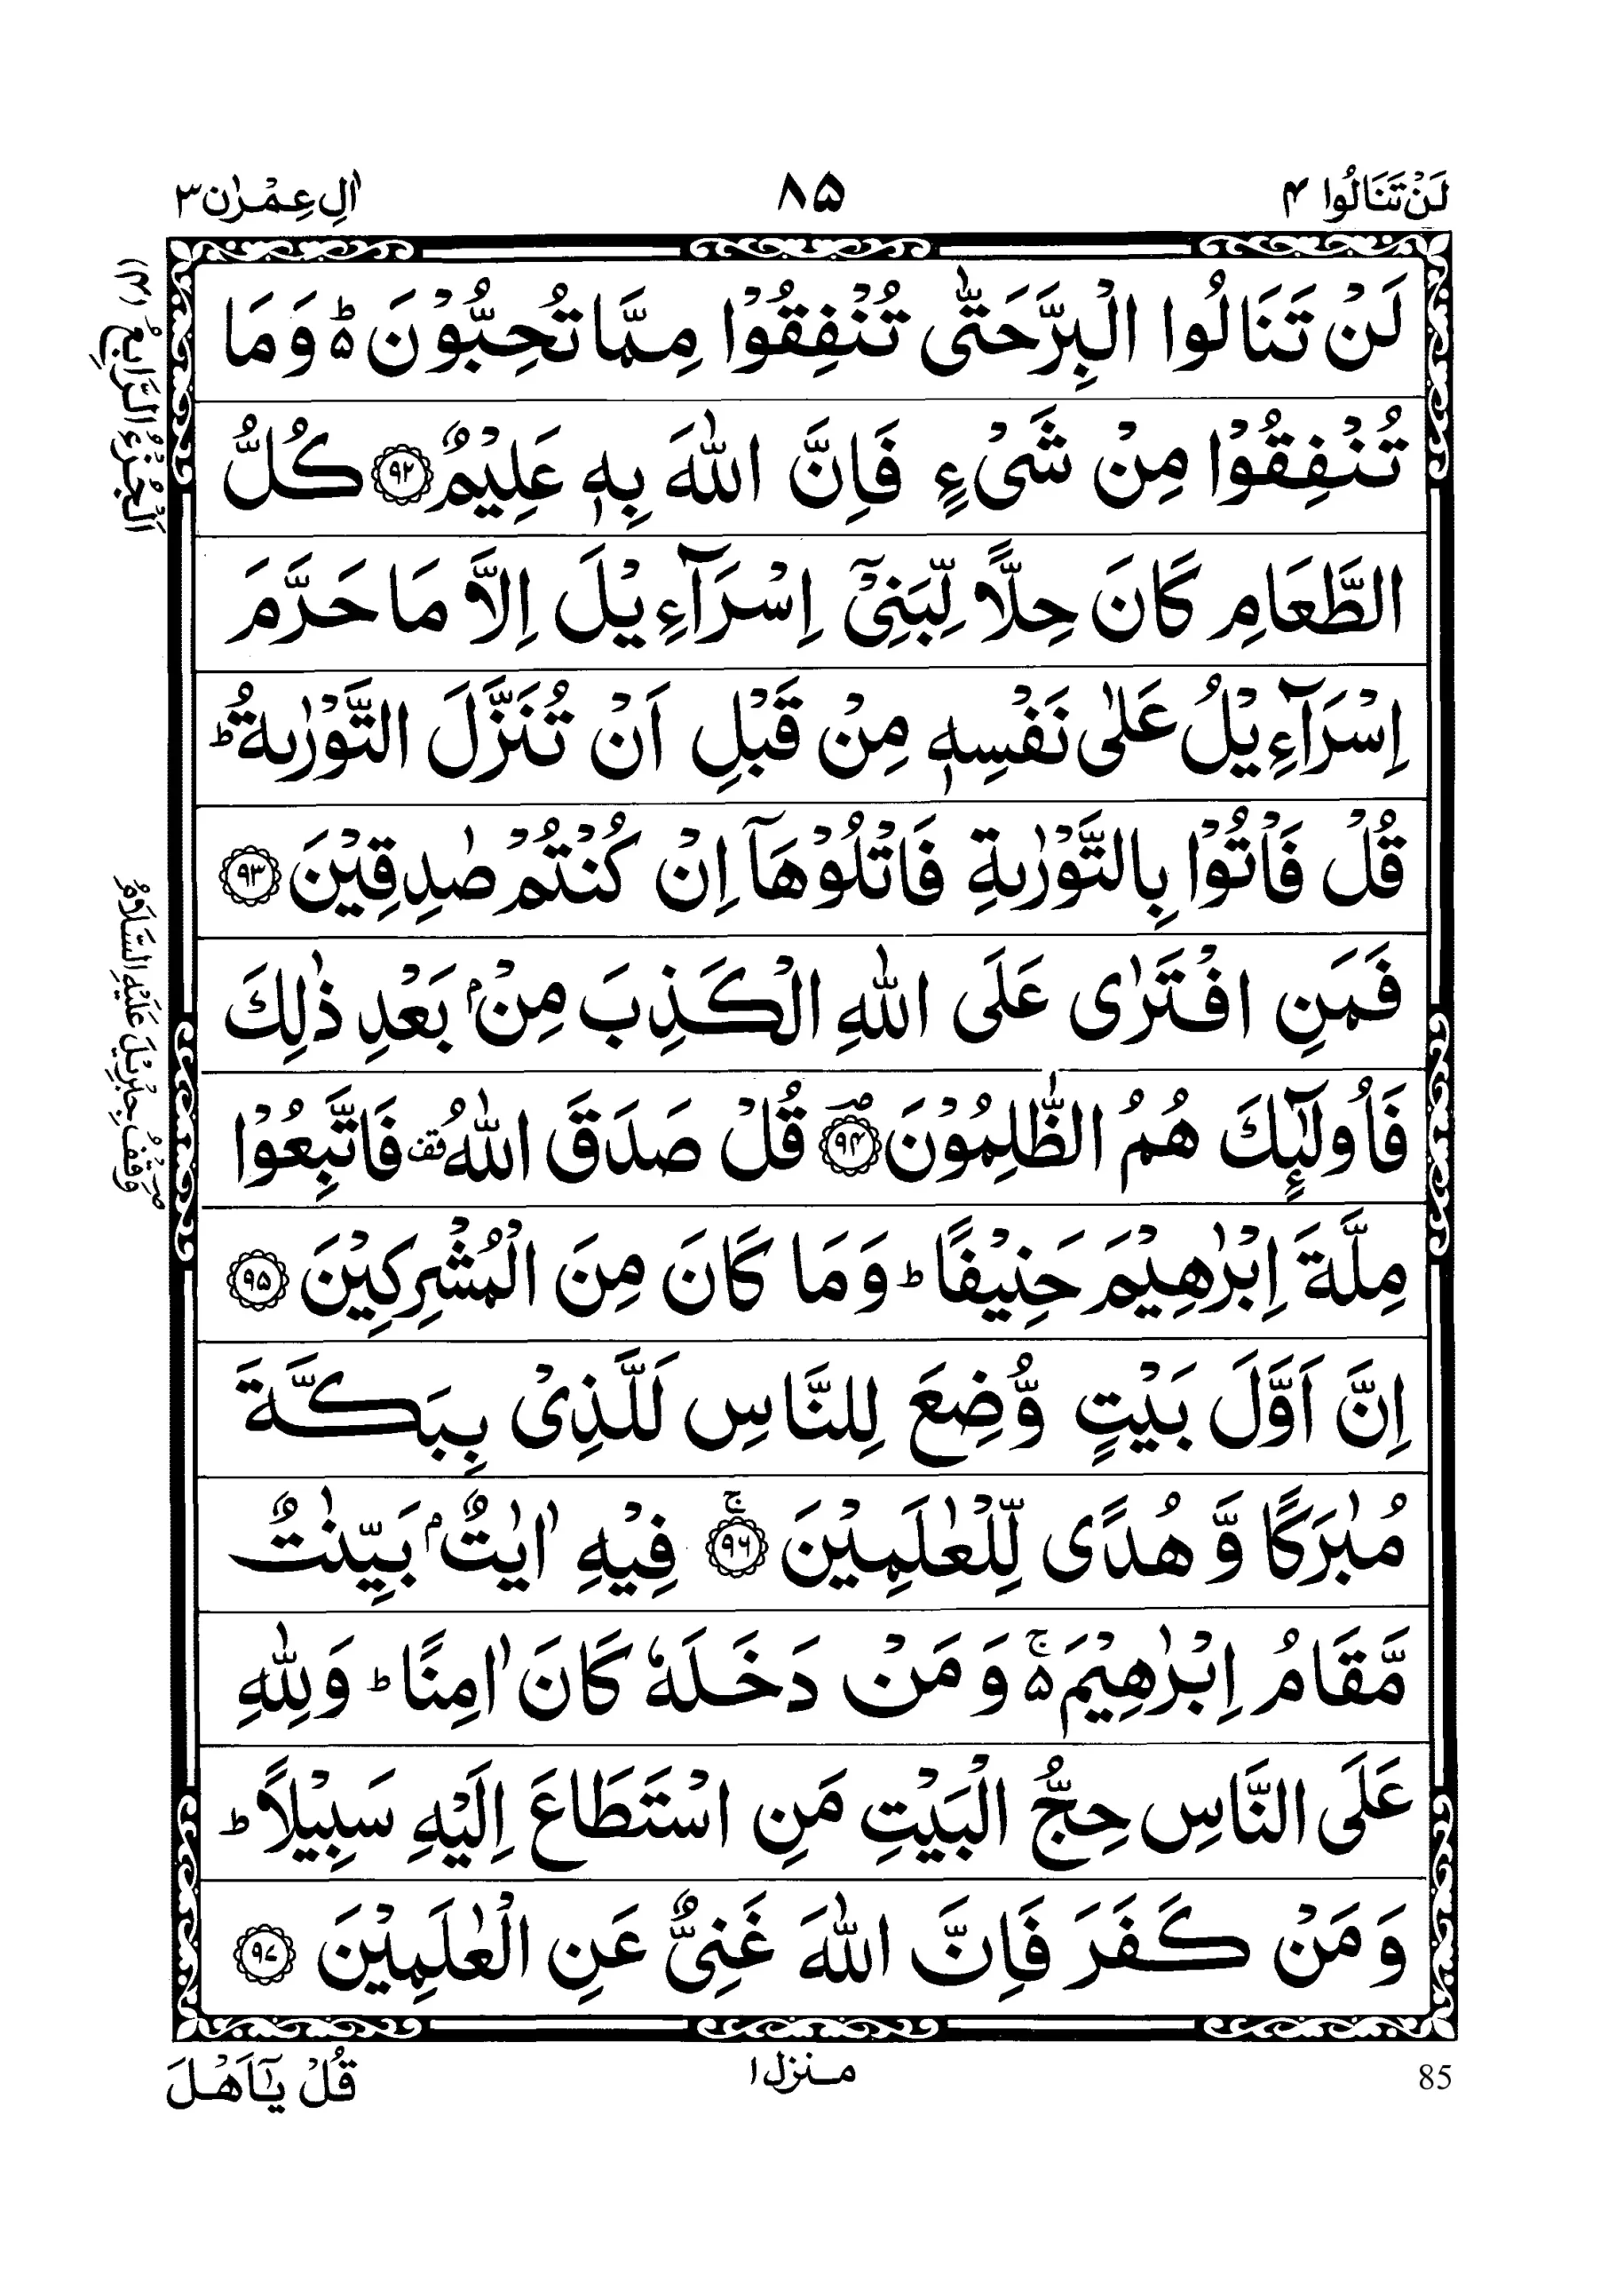 لَنْ تَنَالُوا ۴
۸۵
اٰلِ عِمْرٰن ۳
اَلْجُزْءُ الرَّابِعُ (۴)
لَنْ تَنَالُوا الْبِرَّ حَتّٰى تُنْفِقُوْا مِمَّا تُحِبُّوْنَ ؕ۵ وَمَا
تُنْفِقُوْا مِنْ شَیْءٍ فَاِنَّ اللّٰهَ بِهٖ عَلِیْمٌ ۹۲ كُلُّ
الطَّعَامِ كَانَ حِلًّا لِّبَنِیْۤ اِسْرَآءِیْلَ اِلَّا مَا حَرَّمَ
اِسْرَآءِیْلُ عَلٰى نَفْسِهٖ مِنْ قَبْلِ اَنْ تُنَزَّلَ التَّوْرٰىةُ ؕ
قُلْ فَاْتُوْا بِالتَّوْرٰىةِ فَاتْلُوْهَاۤ اِنْ كُنْتُمْ صٰدِقِیْنَ ۹۳
فَمَنِ افْتَرٰى عَلَى اللّٰهِ الْكَذِبَ مِنْۢ بَعْدِ ذٰلِكَ
فَاُولٰٓىِٕكَ هُمُ الظّٰلِمُوْنَ ۹۴ؔ قُلْ صَدَقَ اللّٰهُ ۫ فَاتَّبِعُوْا
وَقْفُ جِبْرِیْلَ عَلَیْهِ السَّلَامُ
مِلَّةَ اِبْرٰهِیْمَ حَنِیْفًا ؕ وَمَا كَانَ مِنَ الْمُشْرِكِیْنَ ۹۵
اِنَّ اَوَّلَ بَیْتٍ وُّضِعَ لِلنَّاسِ لَلَّذِیْ بِبَكَّةَ
مُبٰرَكًا وَّ هُدًى لِّلْعٰلَمِیْنَ ۹۶ۚ فِیْهِ اٰیٰتٌۢ بَیِّنٰتٌ
مَّقَامُ اِبْرٰهِیْمَ ۵ۚ وَمَنْ دَخَلَهٗ كَانَ اٰمِنًا ؕ وَلِلّٰهِ
عَلَى النَّاسِ حِجُّ الْبَیْتِ مَنِ اسْتَطَاعَ اِلَیْهِ سَبِیْلًا ؕ
وَمَنْ كَفَرَ فَاِنَّ اللّٰهَ غَنِیٌّ عَنِ الْعٰلَمِیْنَ ۹۷
85
منزل ۱
قُلْ یٰۤاَهْلَ